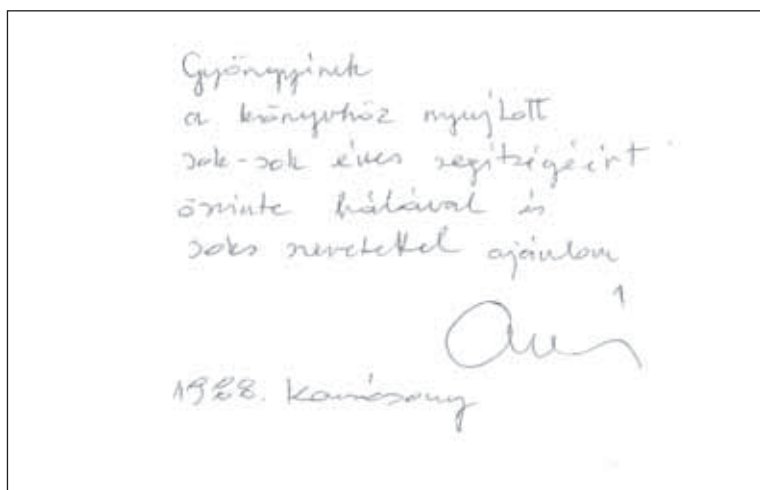 Gyöngyinek
a könyvhöz nyujtott
sok-sok éves segítségéért
őszinte hálával és
sok szeretettel ajánlom
1988. Karácsony